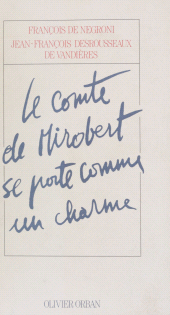 FRANÇOIS DE NEGRONI
JEAN-FRANÇOIS DESROUSSEAUX
DE VANDIÈRES
Le comte
de Mirobert
se porte comme
un charme
OLIVIER ORBAN